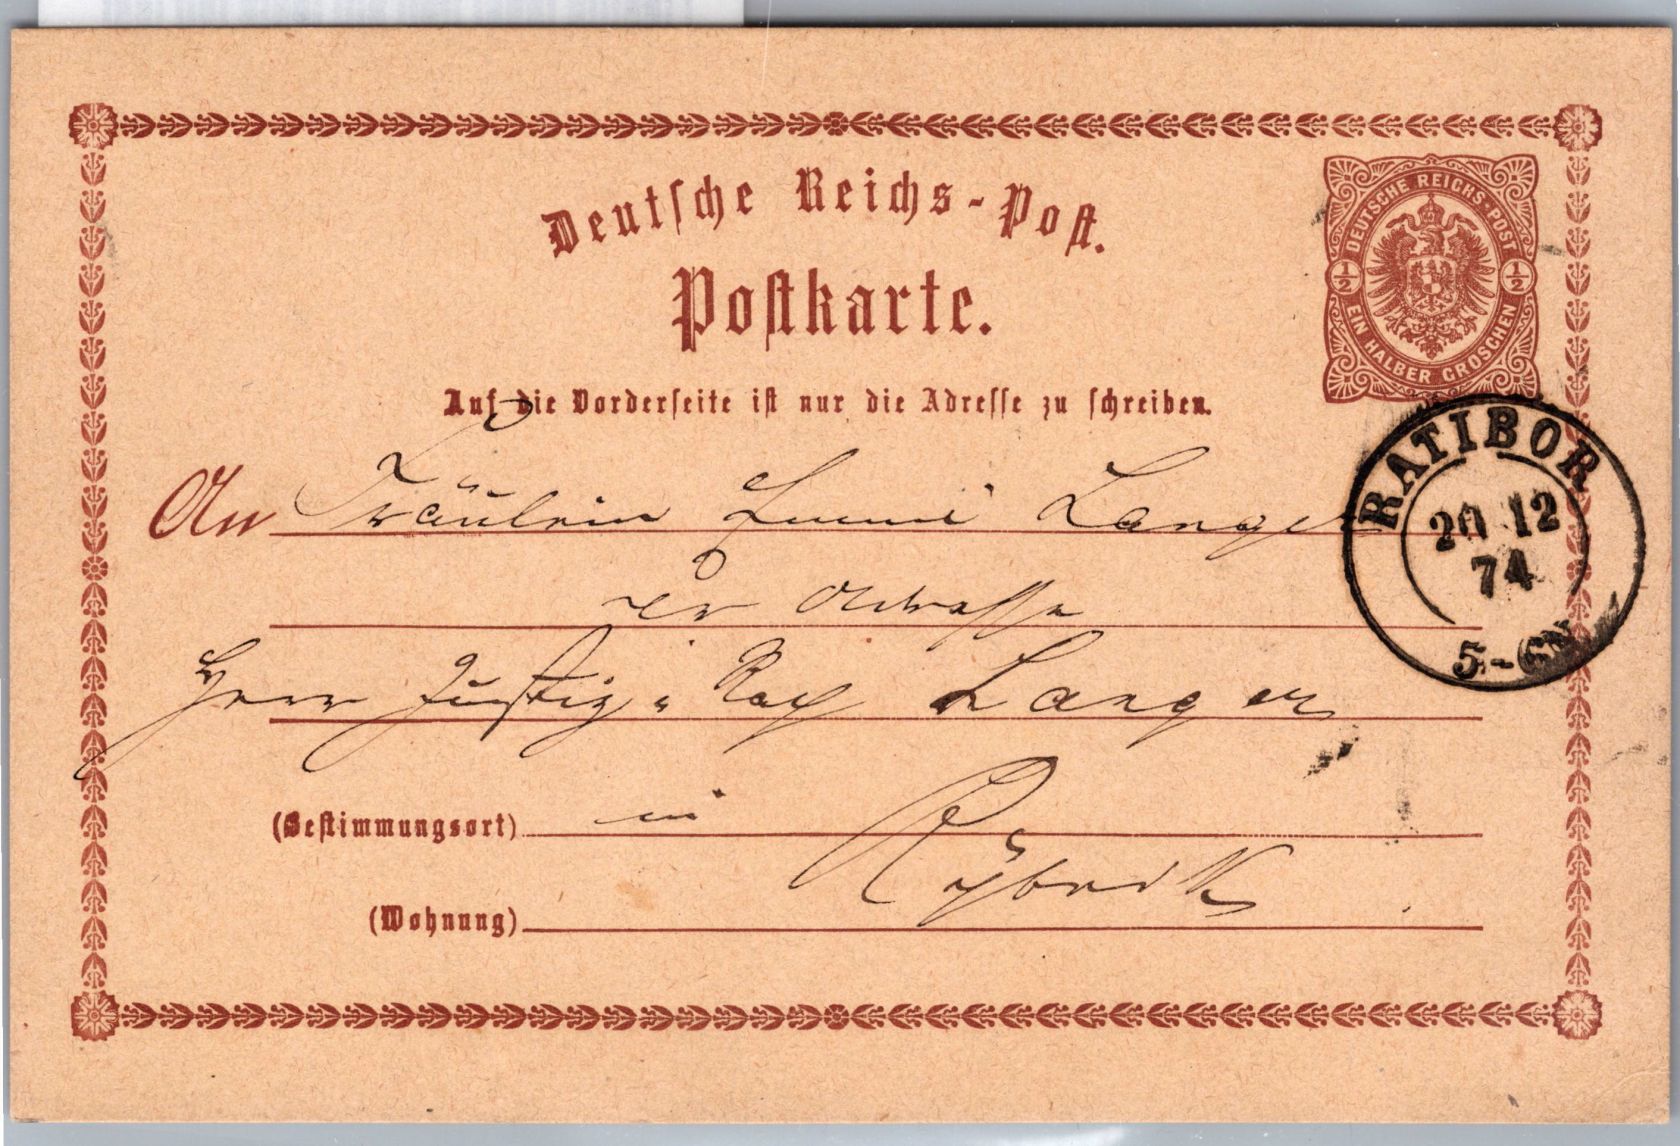 Deutsche Reichs-Post.
Postkarte.
DEUTSCHE REICHS-POST
1/2 1/2
EIN HALBER GROSCHEN
Auf die Vorderseite ist nur die Adresse zu schreiben.
RATIBOR
20 12
74
5-6N
An Fräulein Lange
der Adresse
Herr Justiz-Rath Langer
(Bestimmungsort) in
Rybnik
(Wohnung)